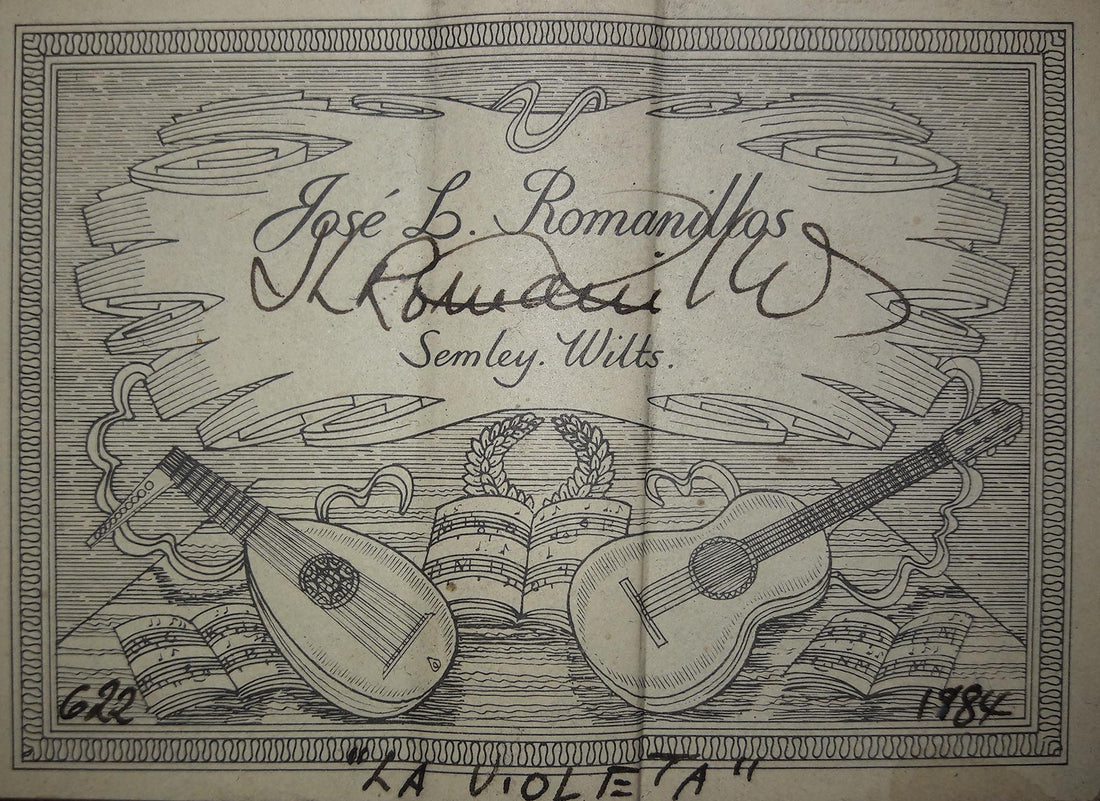 José L. Romanillos
JLRomanillos
Semley. Wilts.
622
1984
"LA VIOLETA"